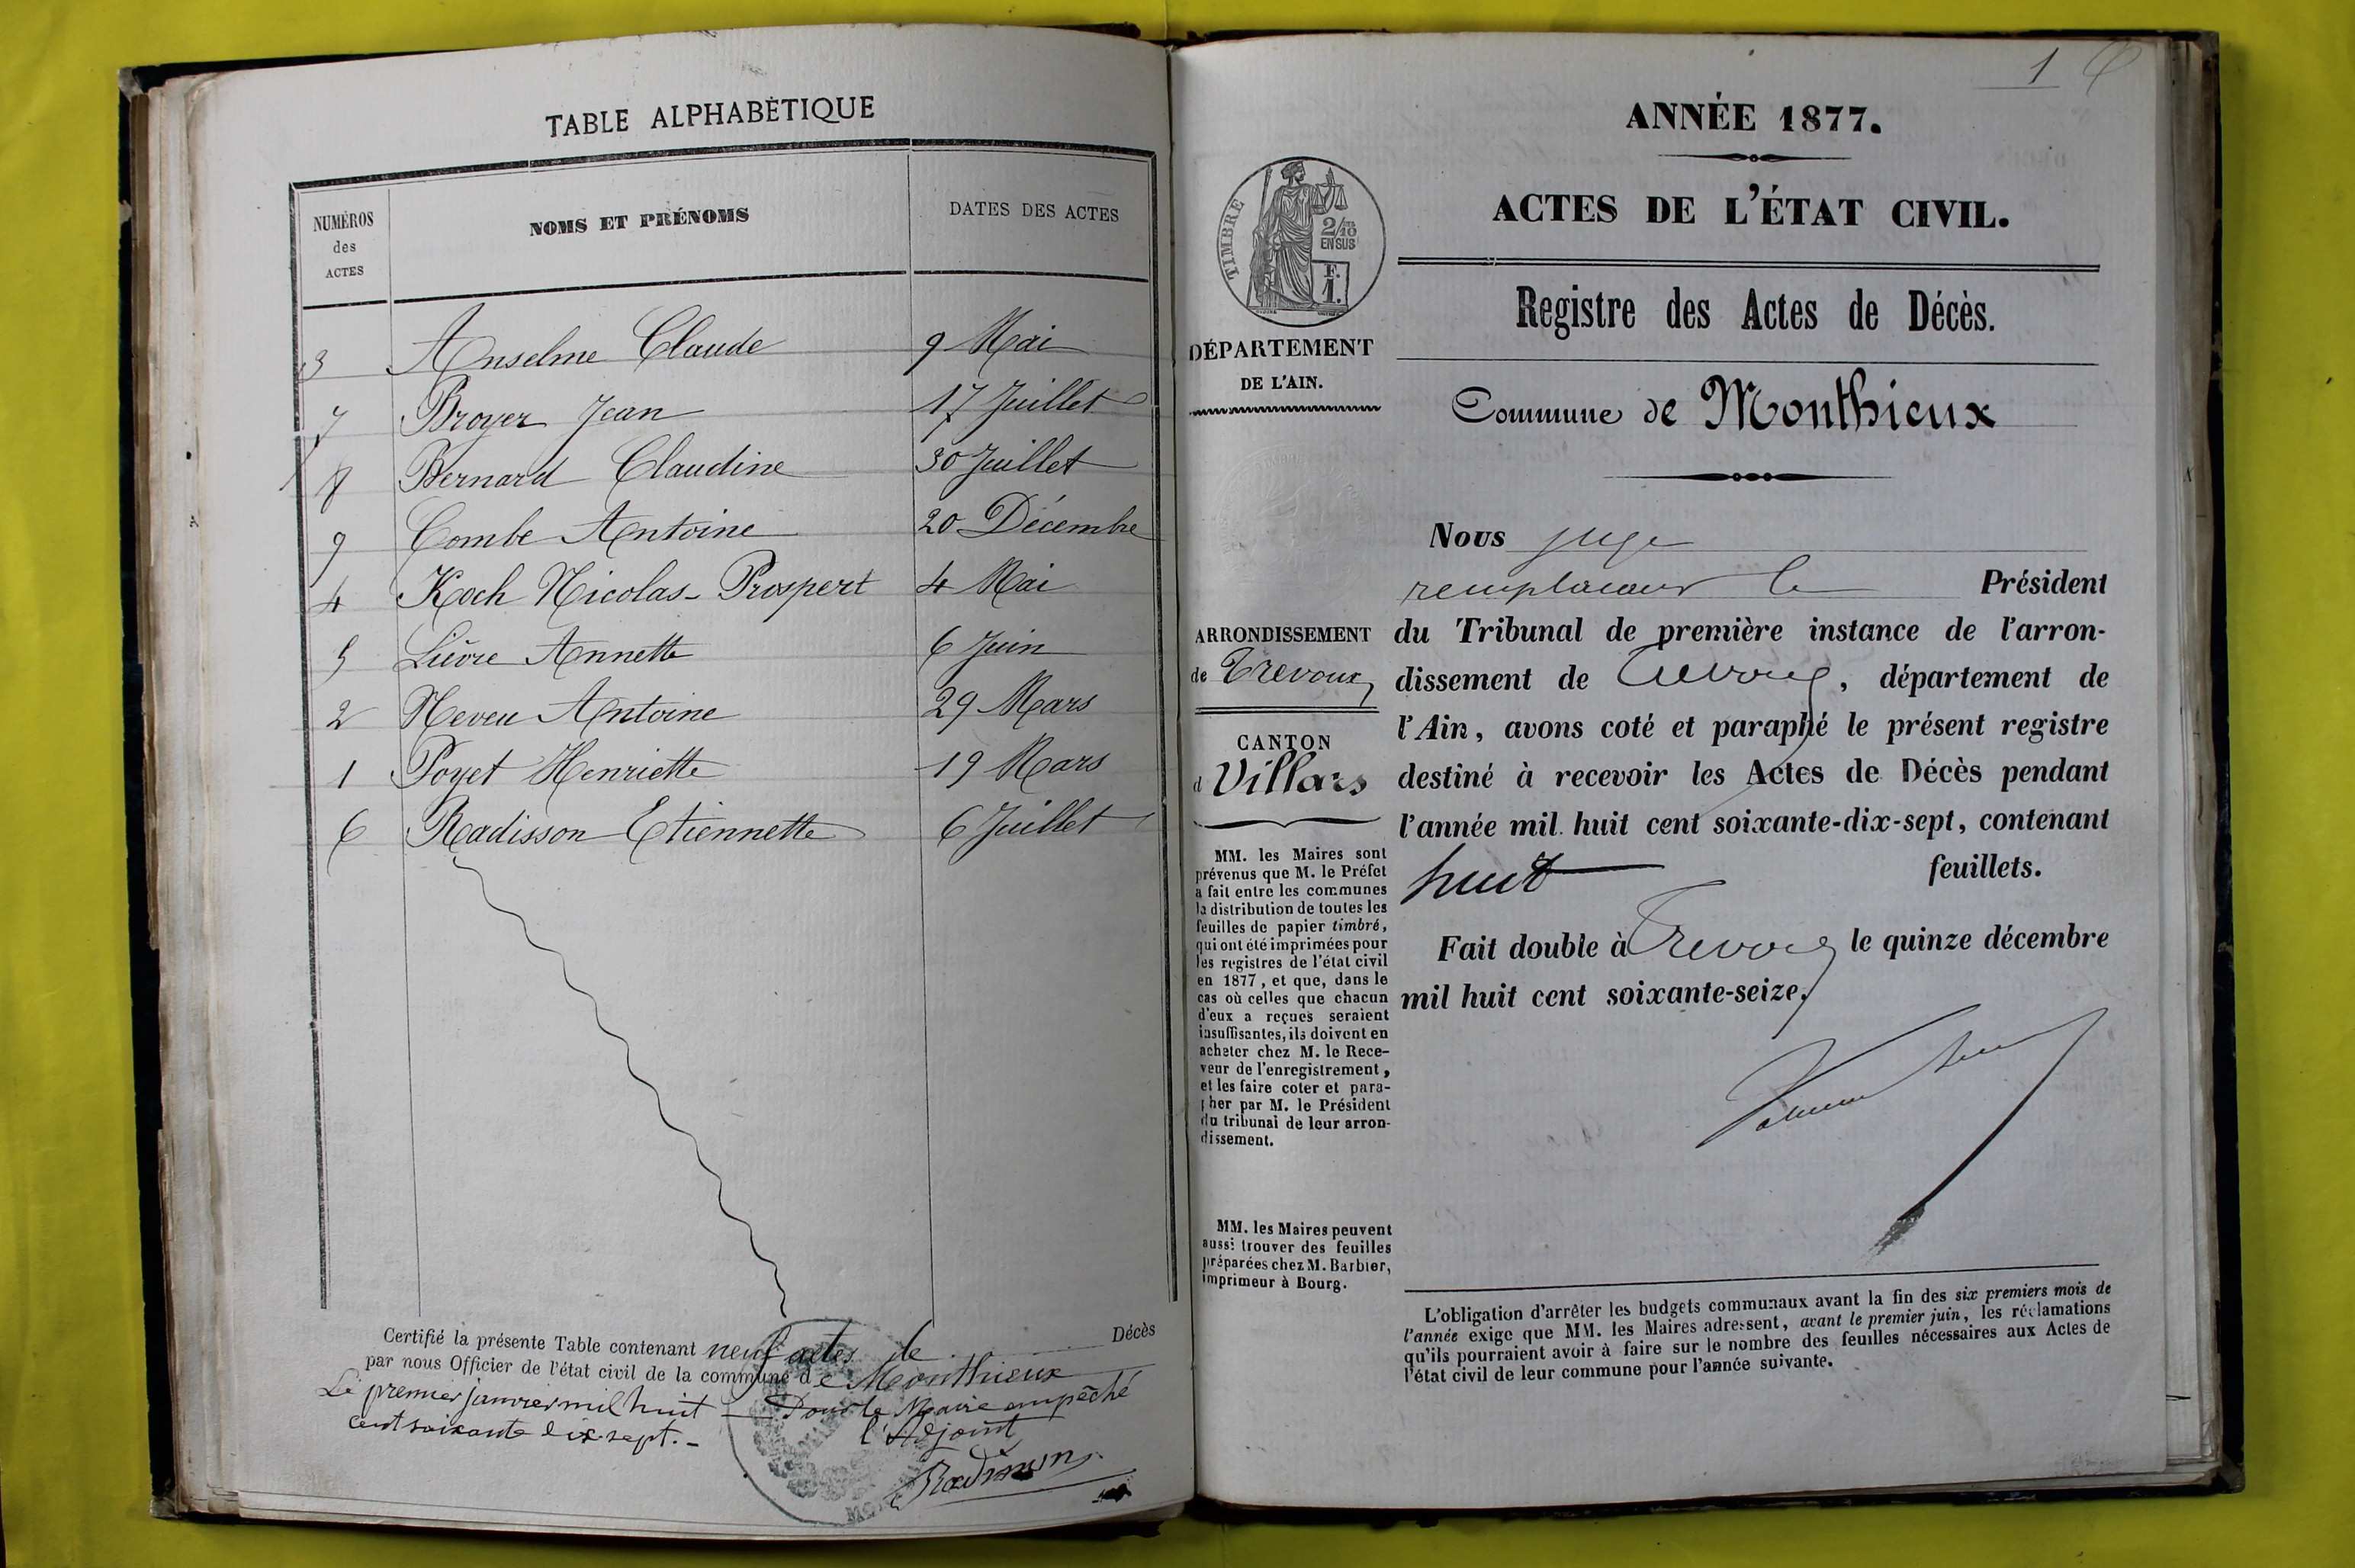 TABLE ALPHABÉTIQUE
NUMÉROS
des
ACTES
NOMS ET PRÉNOMS
DATES DES ACTES
3 Anselme Claude 9 Mai
7 Broyer Jean 17 Juillet
8 Bernard Claudine 30 Juillet
9 Combe Antoine 20 Décembre
4 Koch Nicolas-Prospert 4 Mai
5 Lièvre Annette 6 Juin
2 Neveu Antoine 29 Mars
1 Poyet Henriette 19 Mars
6 Radisson Etiennette 6 Juillet
Certifié la présente Table contenant neuf actes de Décès
par nous Officier de l'état civil de la commune de Monthieux
Le premier janvier mil huit Pour le Maire empêché
cent soixante dix-sept.- l'Adjoint
Radisson
1
ANNÉE 1877.
ACTES DE L'ÉTAT CIVIL.
Registre des Actes de Décès.
Commune de Monthieux
TIMBRE
2/10
EN SUS
F.
1.
DÉPARTEMENT
DE L'AIN.
ARRONDISSEMENT
de Trevoux
CANTON
d Villars
MM. les Maires sont
prévenus que M. le Préfet
a fait entre les communes
la distribution de toutes les
feuilles de papier timbré,
qui ont été imprimées pour
les registres de l'état civil
en 1877, et que, dans le
cas où celles que chacun
d'eux a reçues seraient
insuffisantes, ils doivent en
acheter chez M. le Rece-
veur de l'enregistrement,
et les faire coter et para-
pher par M. le Président
du tribunal de leur arron-
dissement.
MM. les Maires peuvent
aussi trouver des feuilles
préparées chez M. Barbier,
imprimeur à Bourg.
Nous juge
remplaçant le Président
du Tribunal de première instance de l'arron-
dissement de Trevoux, département de
l'Ain, avons coté et paraphé le présent registre
destiné à recevoir les Actes de Décès pendant
l'année mil huit cent soixante-dix-sept, contenant
huit feuillets.
Fait double à Trevoux le quinze décembre
mil huit cent soixante-seize.
L'obligation d'arrêter les budgets communaux avant la fin des six premiers mois de
l'année exige que MM. les Maires adressent, avant le premier juin, les réclamations
qu'ils pourraient avoir à faire sur le nombre des feuilles nécessaires aux Actes de
l'état civil de leur commune pour l'année suivante.